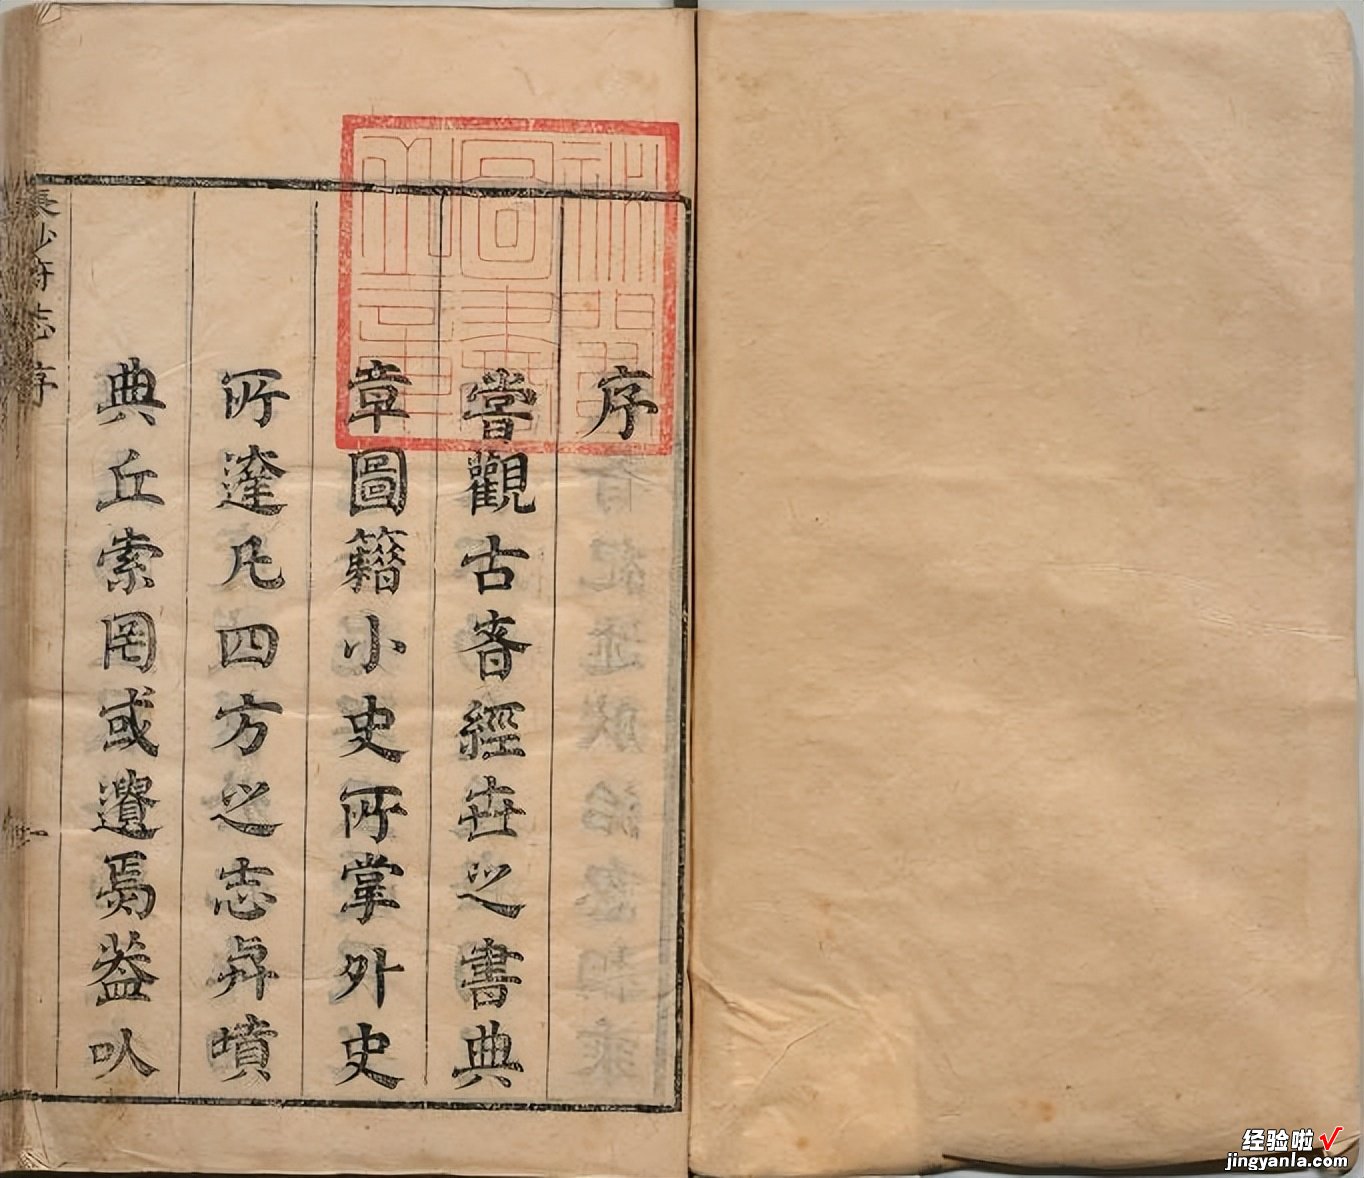 序
嘗觀古昔經世之書典
章圖籍小史所掌外史
所達凡四方之志與墳
典丘索罔或遺焉葢以
長沙府志 序
一
经验啦
jingyanla.com